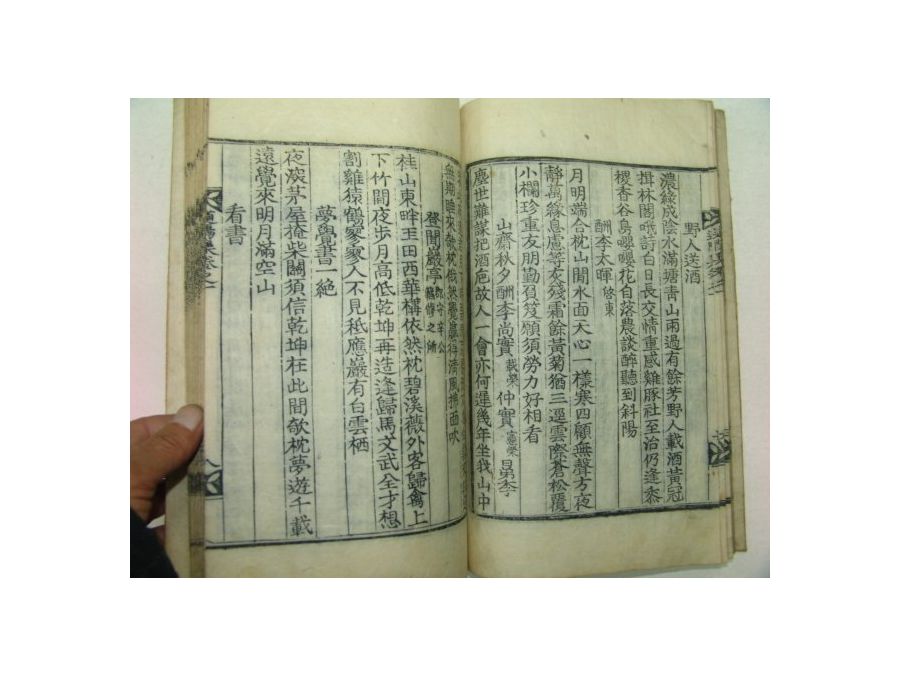 野人送酒
濃綠成陰水滿塘靑山雨過有餘芳野人載酒黃冠
揖林閣哦詩白日長交情重感雞豚社至治仍逢黍
稷香谷鳥嚶嚶花自落農談醉聽到斜陽
酬李太暉 啓東
月明端合枕山閒水面天心一樣寒四顧無聲方夜
靜萬緣息慮等灰殘霜餘黃菊猶三逕雲際蒼松覆
小欄珍重友朋勤負笈願須勞力好相看
山齋秋夕酬李尚實 載榮 仲實 憲榮 昆季
塵世難謀把酒巵故人一會亦何遲幾年坐我山中
面吹
登聞巖亭
桂山東畔玉田西華構依然枕碧溪薇外客歸禽上
下竹間夜步月高低乾坤再造逢歸馬文武全才想
割雞猿鶴寥寥人不見秪應巖有白雲栖
夢覺書一絶
夜深茅屋掩柴關須信乾坤在此間欹枕夢遊千載
遠覺來明月滿空山
看書